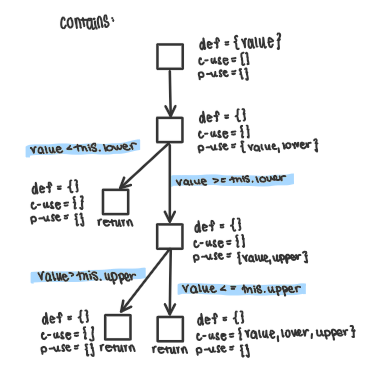 contains:
def = {value}
c-use = {}
p-use = {}
def = {}
c-use = {}
p-use = {value, lower}
value < this.lower
value >= this.lower
def = {}
c-use = {}
p-use = {}
return
def = {}
c-use = {}
p-use = {value, upper}
value > this.upper
value <= this.upper
def = {}
c-use = {}
p-use = {}
return
def = {}
c-use = {value, lower, upper}
p-use = {}
return